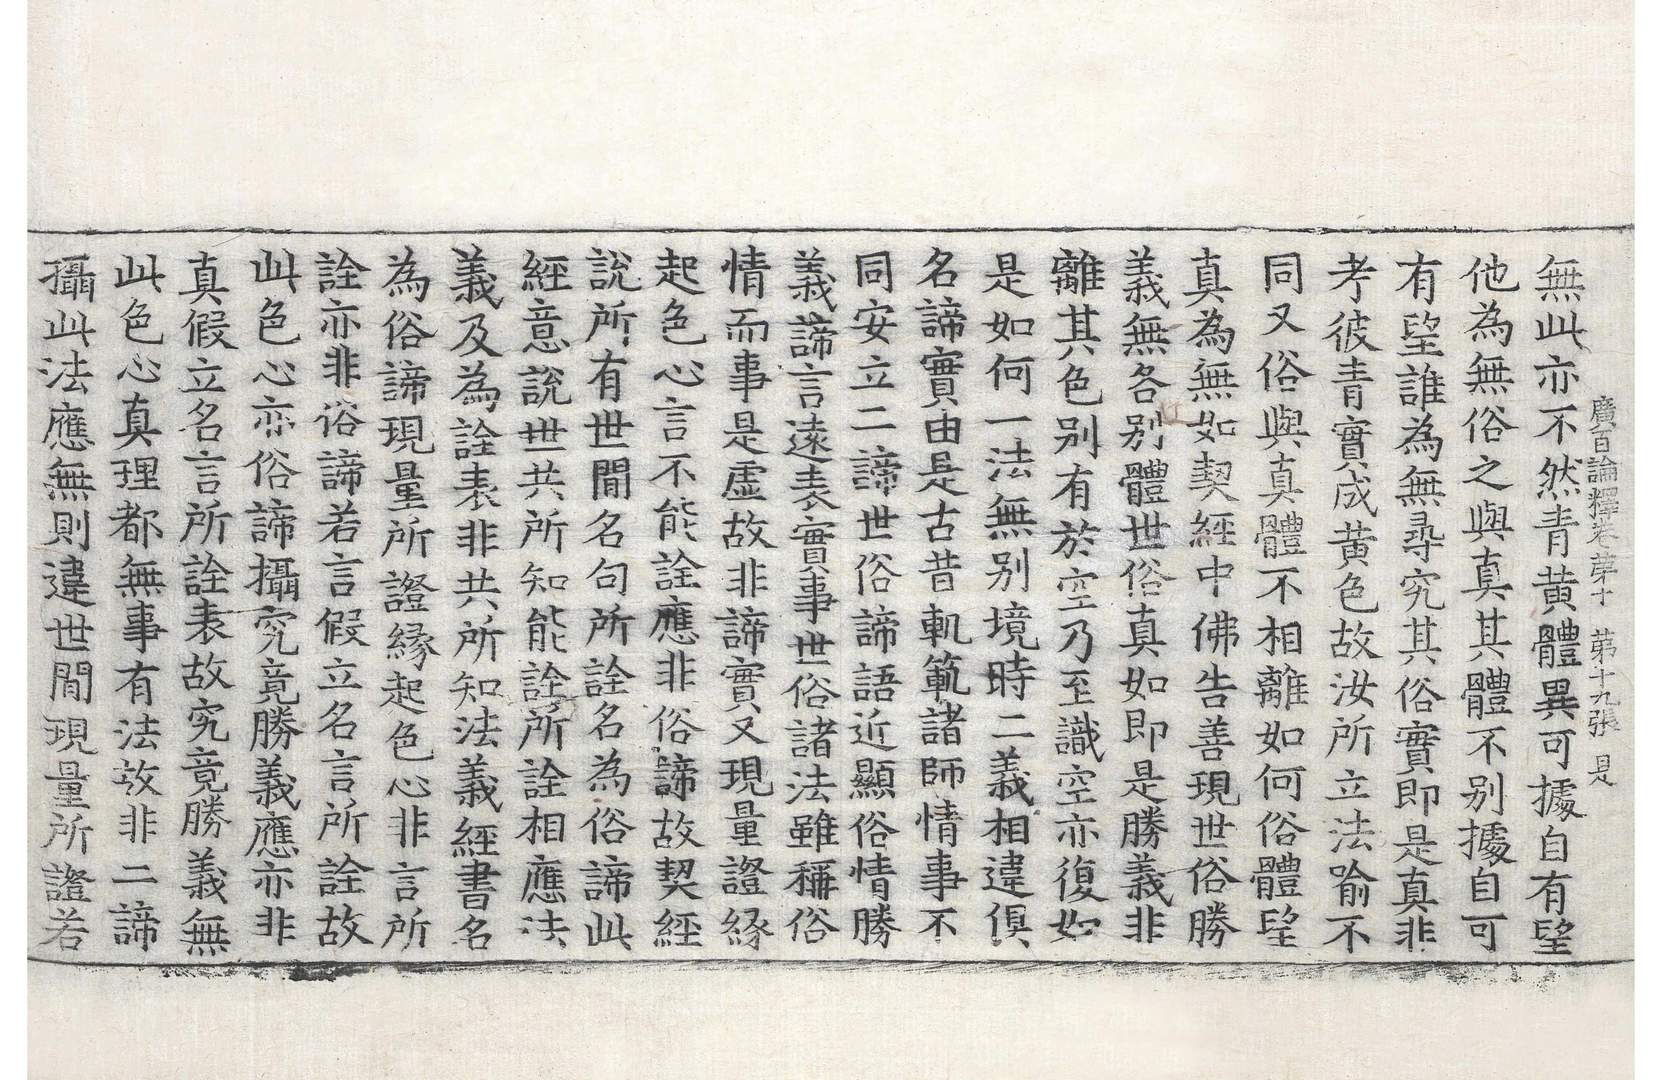 廣百論釋卷第十　第十九張　是
無此亦不然青黄體異可據自有望
他為無俗之與真其體不別據自可
有望誰為無尋究其俗實即是真非
考彼青實成黄色故汝所立法喻不
同又俗與真體不相離如何俗體望
真為無如契經中佛告善現世俗勝
義無各別體世俗真如即是勝義非
離其色別有於空乃至識空亦復如
是如何一法無別境時二義相違俱
名諦實由是古昔軌範諸師情事不
同安立二諦世俗諦語近顯俗情勝
義諦言遠表實事世俗諸法雖稱俗
情而事是虛故非諦實又現量證緣
起色心言不能詮應非俗諦故契經
說所有世間名句所詮名為俗諦此
經意說世共所知能詮所詮相應法
義及為詮表非共所知法義經書名
為俗諦現量所證緣起色心非言所
詮亦非俗諦若言假立名言所詮故
此色心亦俗諦攝究竟勝義應亦非
真假立名言所詮表故究竟勝義無
此色心真理都無事有法故非二諦
攝此法應無則違世間現量所證若